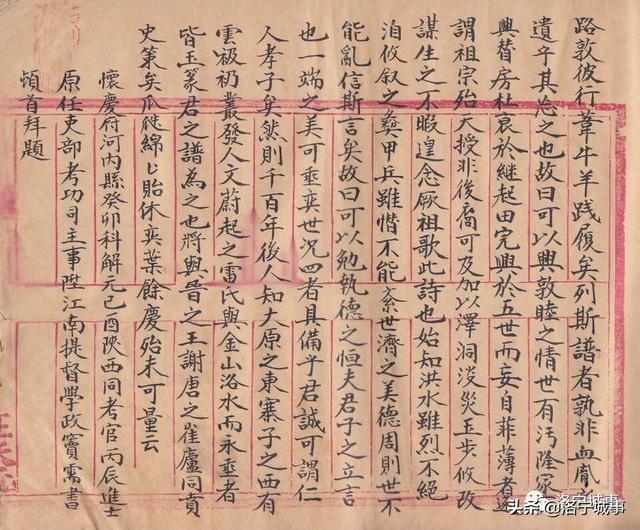 路敦彼行葦牛羊践履矣列斯譜者孰非血胤
遺乎其忍之也故曰可以興敦睦之情世有污隆家
興替房杜衰於継起田完興於五世而妄自菲薄者
謂祖宗殆天授非後裔可及加以澤洞淩災玉步攸改
謀生之不暇遑念厥祖歌此詩也始知洪水雖烈不絕
洎攸叙之彜甲兵雖惨不能紊世濟之美德周則世不
能亂信斯言矣故曰可以勉執德之恒夫君子之立言
也一端之美可垂奕世况四者具備乎君誠可謂仁
人孝子矣然則千百年後人知大原之東寨子之西有
雲礽叢發人文蔚起之雷氏與金山洛水而永垂者
皆玉篆君之譜為之也將與晉之王謝唐之崔廬同賁
史策矣瓜瓞綿〻貽休奕葉餘慶殆未可量云
懷慶府河内縣癸卯科解元己酉陝西同考官丙辰進士
原任吏部考功司主事陞江南提督學政竇霱書
頓首拜題
洛宁城事
头条@洛宁城事